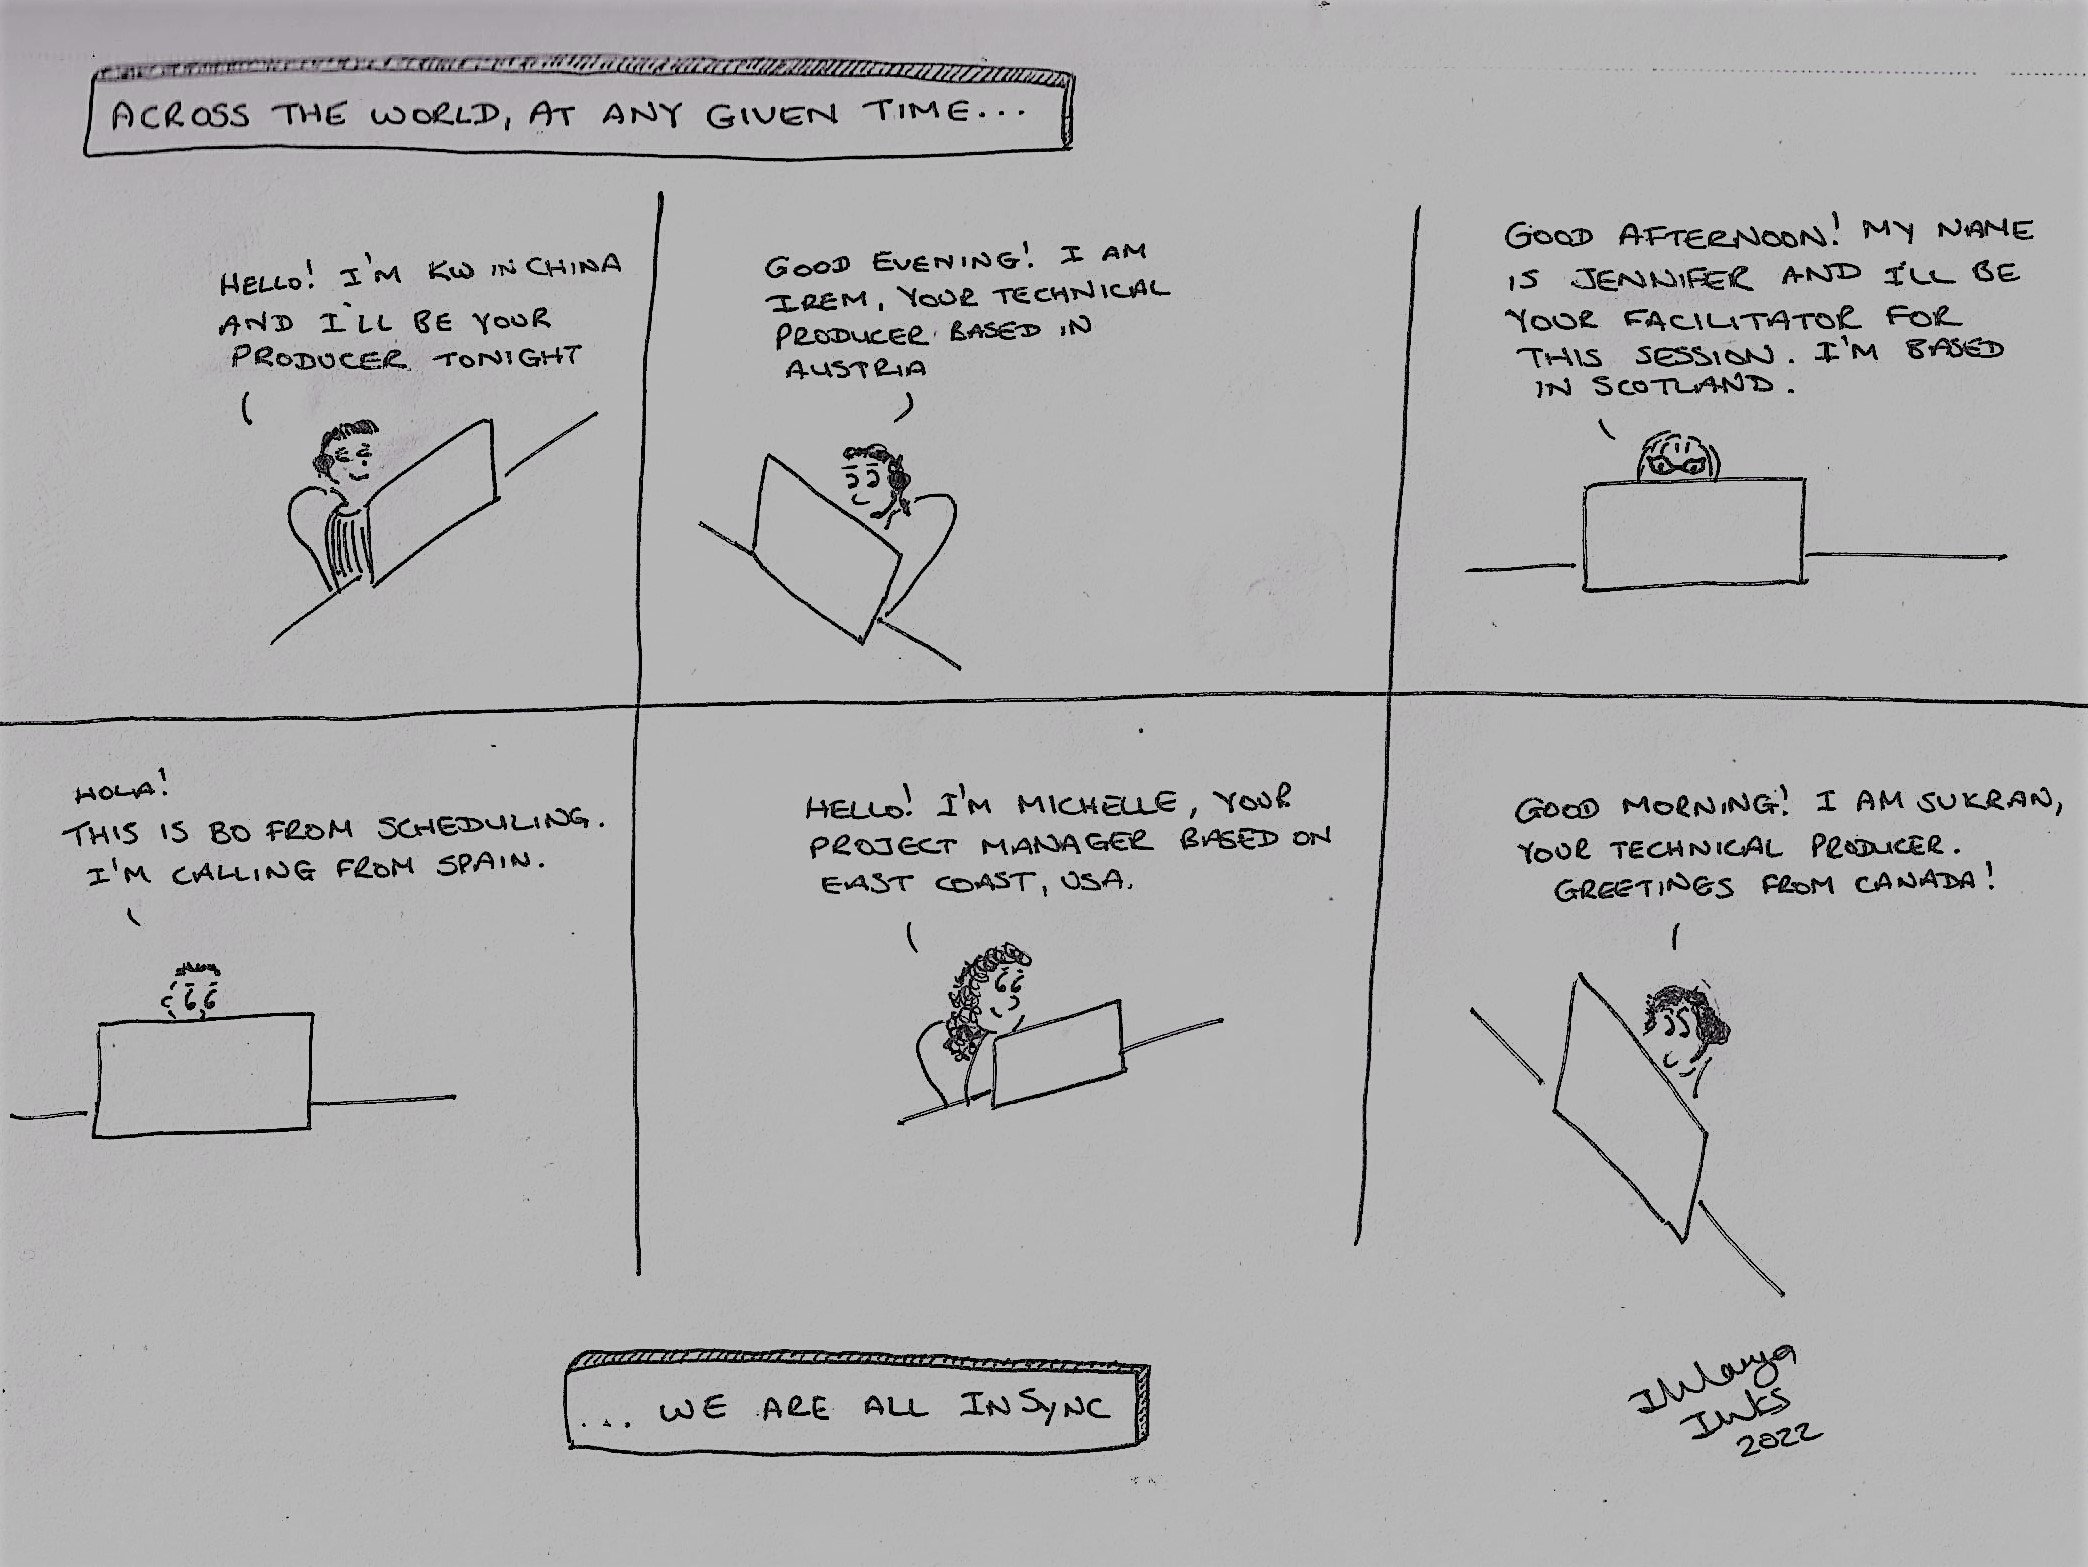 ACROSS THE WORLD, AT ANY GIVEN TIME...
HELLO! I'M KW IN CHINA
AND I'LL BE YOUR
PRODUCER TONIGHT
GOOD EVENING! I AM
IREM, YOUR TECHNICAL
PRODUCER BASED IN
AUSTRIA
GOOD AFTERNOON! MY NAME
IS JENNIFER AND I'LL BE
YOUR FACILITATOR FOR
THIS SESSION. I'M BASED
IN SCOTLAND.
HOLA!
THIS IS BO FROM SCHEDULING.
I'M CALLING FROM SPAIN.
HELLO! I'M MICHELLE, YOUR
PROJECT MANAGER BASED ON
EAST COAST, USA.
GOOD MORNING! I AM SUKRAN,
YOUR TECHNICAL PRODUCER.
GREETINGS FROM CANADA!
... WE ARE ALL INSYNC
Inks
2022